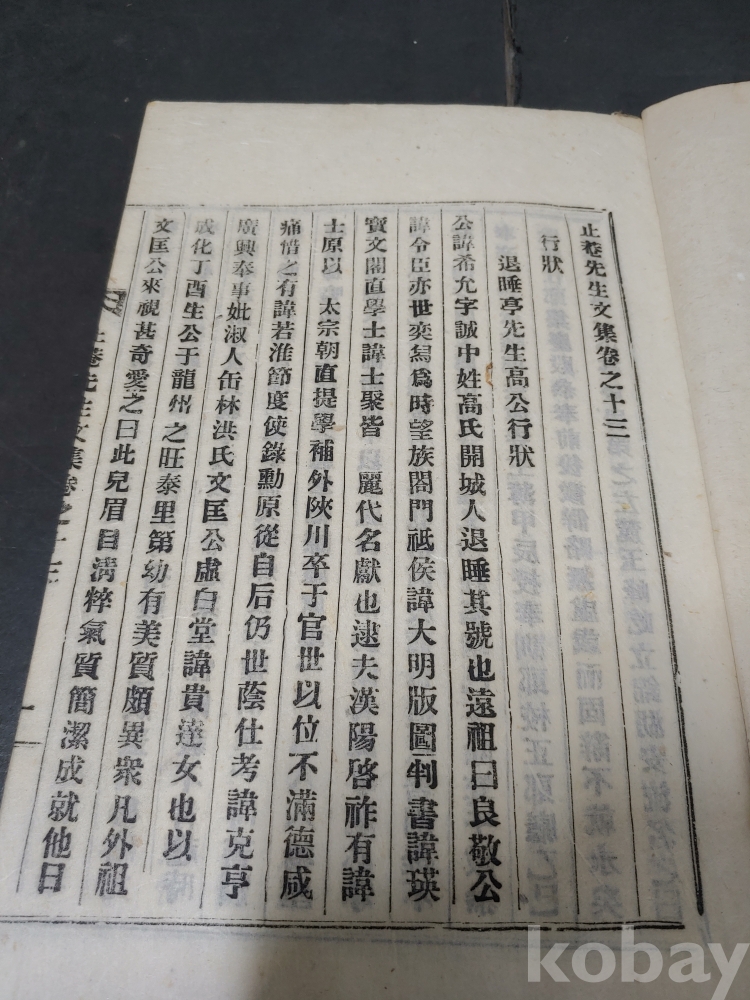 止菴先生文集卷之十三
行狀
退睡亭先生高公行狀
公諱希允字誠中姓高氏開城人退睡其號也遠祖曰良敬公
諱令臣亦世奕舃爲時望族閤門祗侯諱大明版圖判書諱瑛
寶文閣直學士諱士聚皆 麗代名獻也逮夫漢陽啓祚有諱
士原以 太宗朝直提學補外陜川卒于官世以位不滿德咸
痛惜之有諱若淮節度使錄勳原從自后仍世蔭仕考諱克亨
廣興奉事妣淑人缶林洪氏文匡公虛白堂諱貴達女也以
成化丁酉生公于龍州之旺泰里第幼有美質頗異衆凡外祖
文匡公來視甚奇愛之曰此兒眉目淸粹氣質簡潔成就他日
止菴先生文集卷之十三
一
kobay